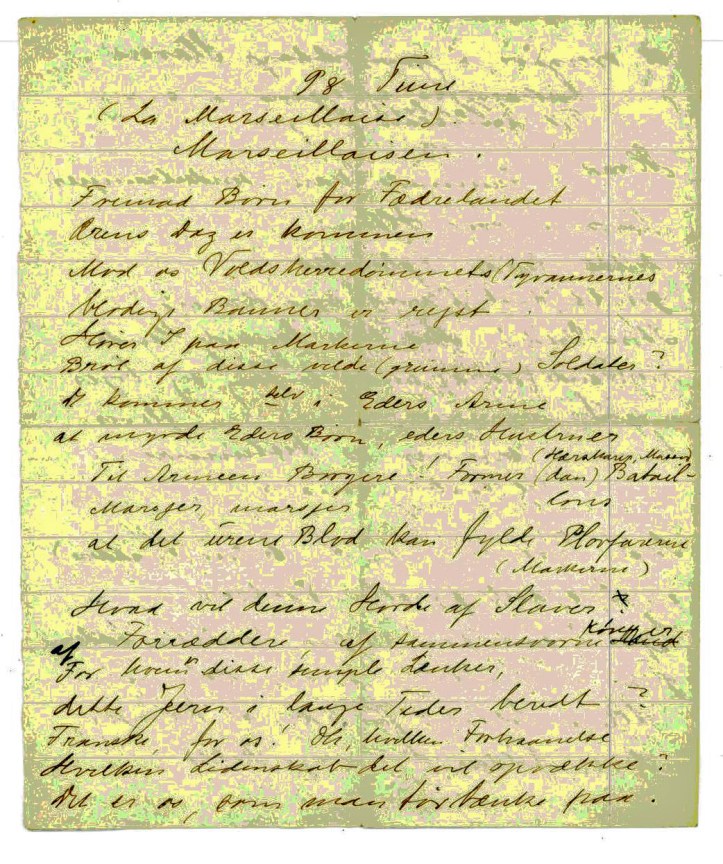 98 Time
(La Marseillaise)
Marseillaisen.
Fremad Børn for Fædrelandet
Ærens Dag er kommen
Mod os Voldsherredømmets (Tyrannernes
blodige Banner er rejst.
Hører I paa Markerne
Brøl af disse vilde (grumme) Soldater?
de kommer selv i Eders Arme
at myrde Eders Børn, eders Hustruer
(Hærskarer, Masser)
Til Armeen Borgere! Former (dan) Batail-
Marsjer, marsjer lons
at det urene Blod kan fylde Plovfurerne
(Markerne)
Hvad vil denne Horde af Slaver?
af Forræddere, af sammensvorne Konger
For hvem disse simple Lænker,
dette Jern i lange Tider beredt?
Franske, for os! Oh, hvilken Forhaanelse
Hvilken Lidenskab det vil opvække?
Det er os, som man tør tænke paa.